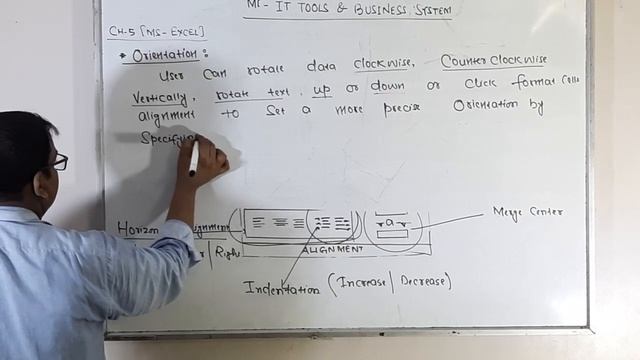 M1- IT TOOLS & BUSINESS SYSTEM
CH-5 [MS-EXCEL]
* Orientation:
User Can rotate data clockwise, Counter Clockwise
Vertically, rotate text, up or down or click format Cells
alignment to Set a more precise Orientation by
Specifying
Merge Center
ALIGNMENT
Indentation (Increase | Decrease)